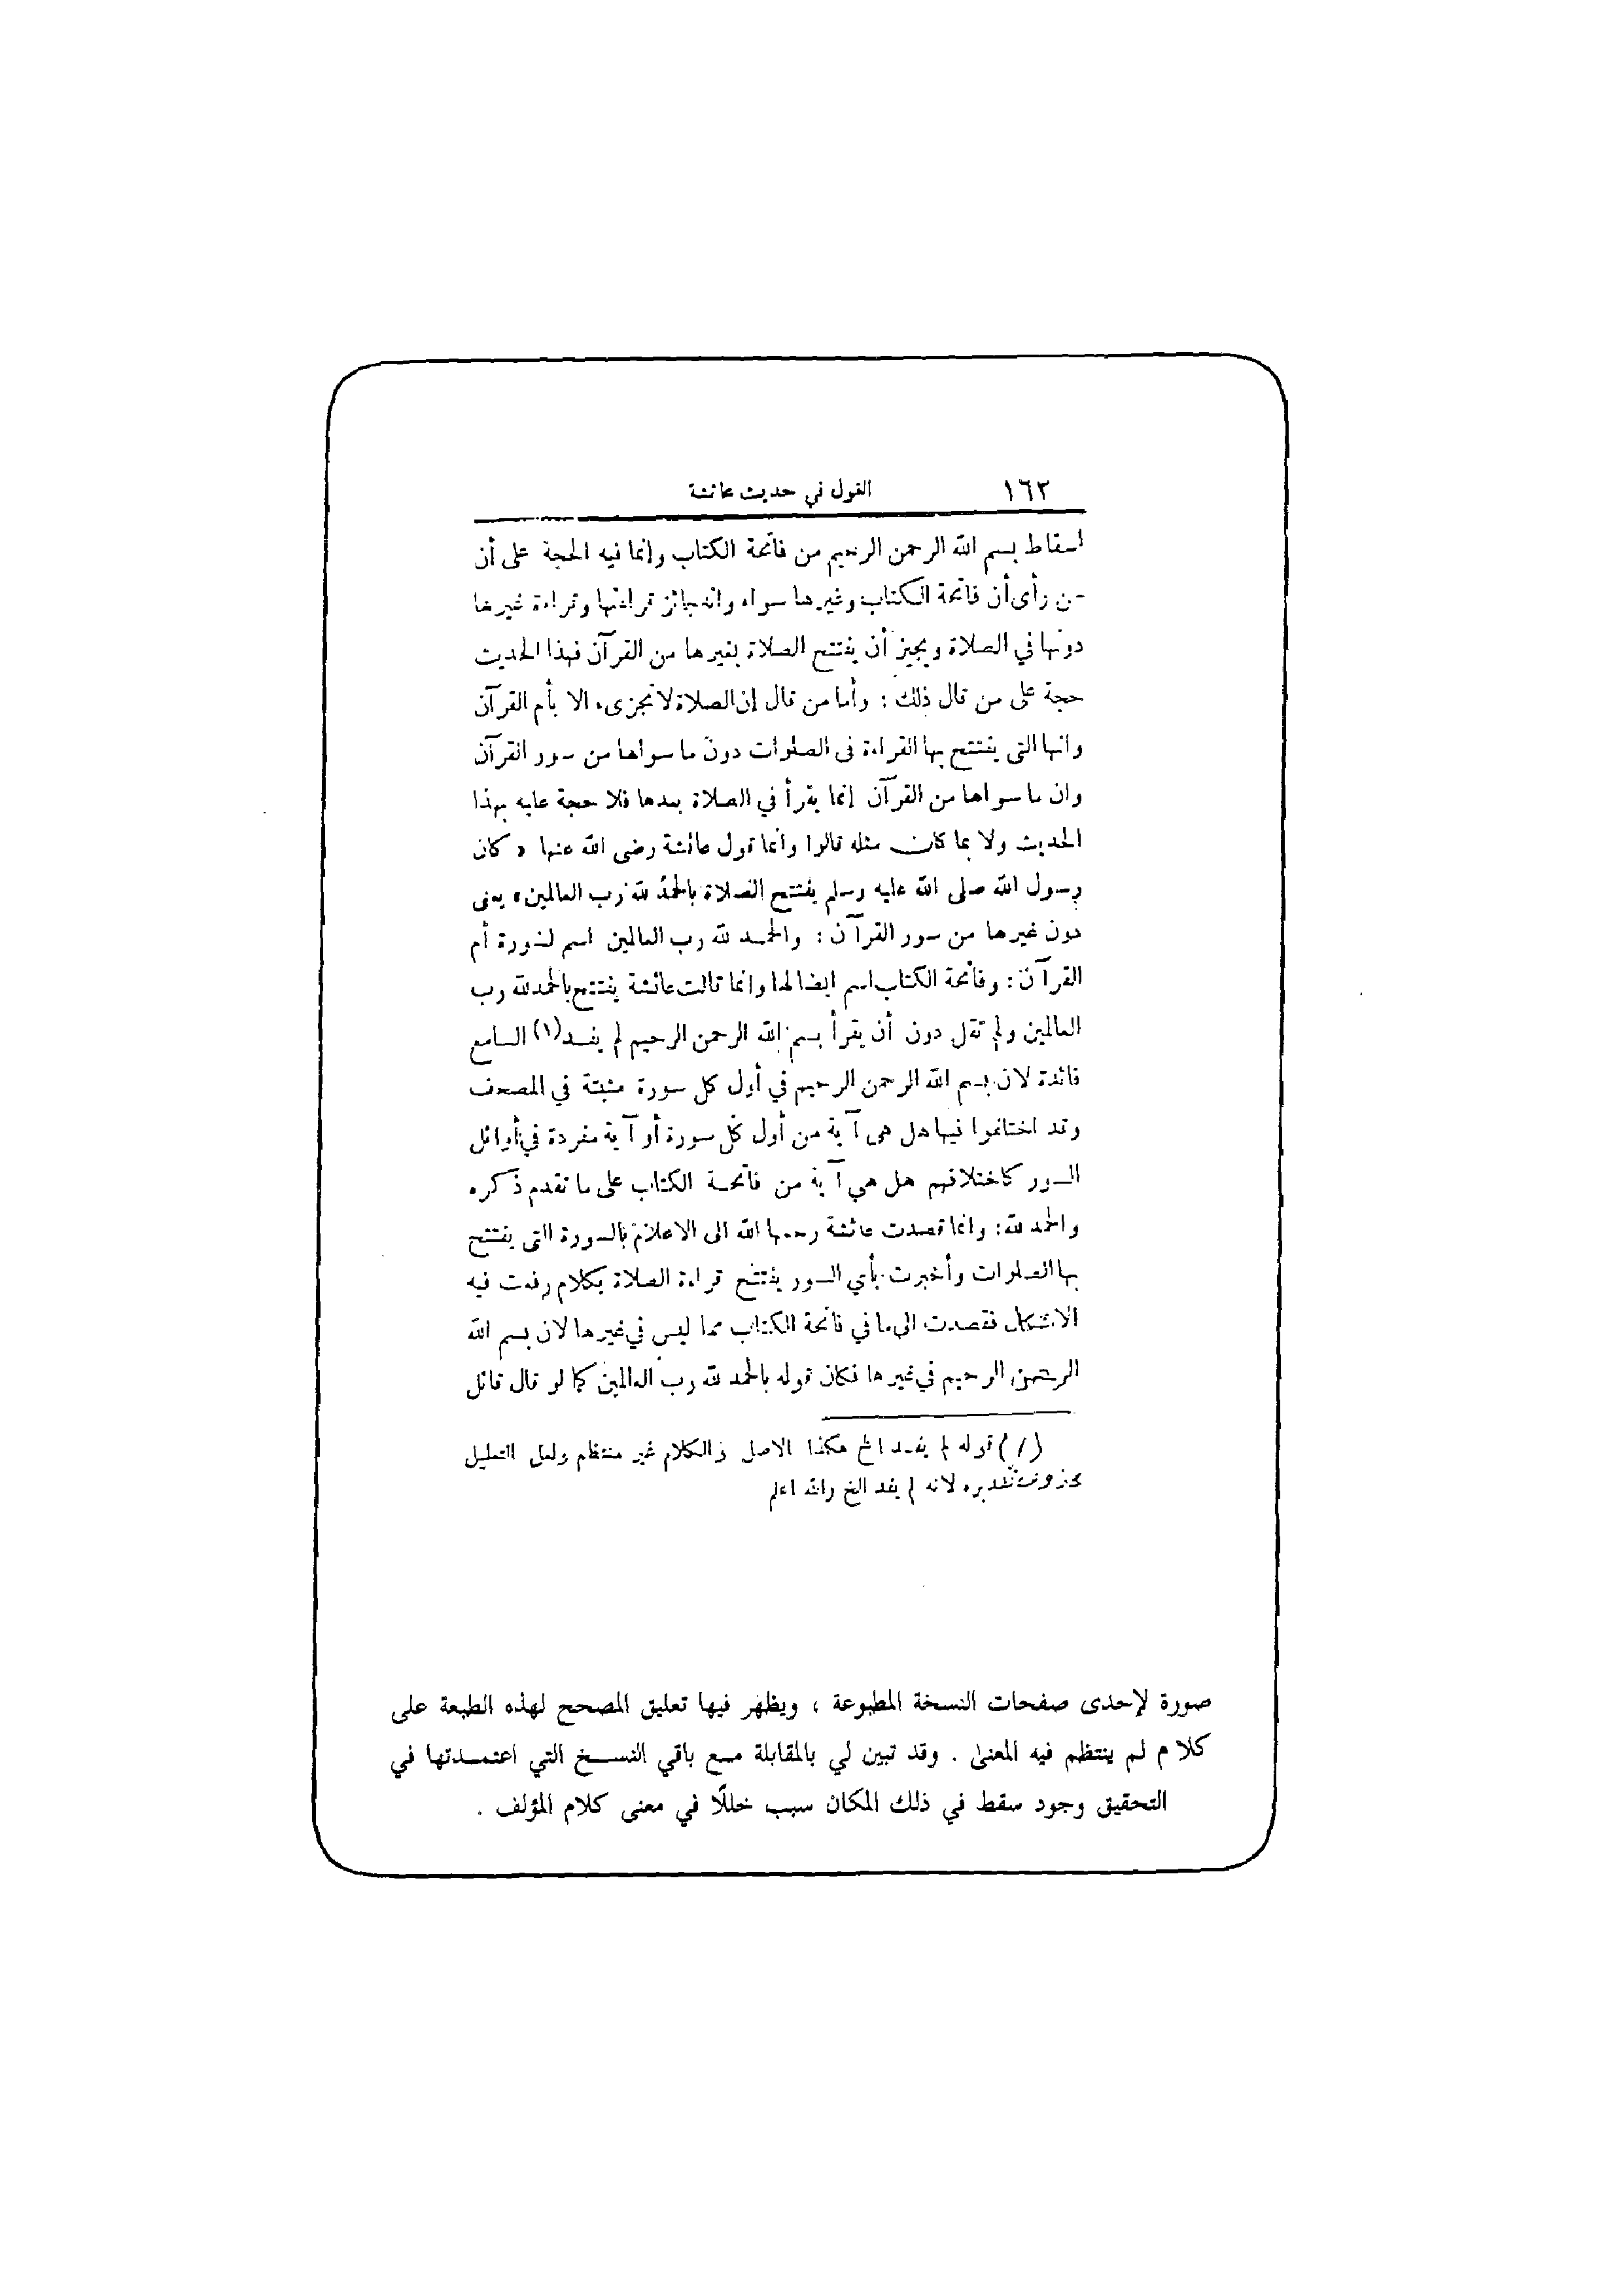 ١٦٢ القول في حديث عائشة
اسقاط بسم الله الرحمن الرحيم من فاتحة الكتاب وانما فيه الحجة على أن
من رأى أن فاتحة الكتاب وغيرها سواء وانه جائز قراءتها وقراءة غيرها
دونها في الصلاة ويجيز أن يفتتح الصلاة بغيرها من القرآن فهذا الحديث
حجة على من قال ذلك : وأما من قال إن الصلاة لا تجزىء الا بأم القرآن
وانها التى يفتتح بها القراءة فى الصلوات دون ما سواها من سور القرآن
وان ما سواها من القرآن إنما يقرأ في الصلاة بعدها فلا حجة عليه بهذا
الحديث ولا بما كان مثله قالوا وانما قول عائشة رضى الله عنها « كان
رسول الله صلى الله عليه وسلم يفتتح الصلاة بالحمد لله رب العالمين » يعنى
دون غيرها من سور القرآن : والحمد لله رب العالمين اسم لسورة أم
القرآن : وفاتحة الكتاب اسم ايضا لها وانما قالت عائشة يفتتح بالحمد لله رب
العالمين ولم تقل دون أن يقرأ بسم الله الرحمن الرحيم لم يفد (١) السامع
فائدة لان بسم الله الرحمن الرحيم في أول كل سورة مثبتة في المصحف
وقد اختلفوا فيها هل هى آية من أول كل سورة أو آية مفردة في أوائل
السور كاختلافهم هل هي آية من فاتحة الكتاب على ما تقدم ذكره
والحمد لله : وانما قصدت عائشة رحمها الله الى الاعلام بالسورة التى يفتتح
بها الصلوات وأخبرت بأي السور يفتتح قراءة الصلاة بكلام رفعت فيه
الاشكال فقصدت الى ما في فاتحة الكتاب مما ليس في غيرها لان بسم الله
الرحمن الرحيم في غيرها فكان قوله بالحمد لله رب العالمين كما لو قال قائل
(١) قوله لم يفد الخ هكذا الاصل والكلام غير منتظم ولعل التعليل
محذوف تقديره لانه لم يفد الخ والله اعلم
صورة لإحدى صفحات النسخة المطبوعة ، ويظهر فيها تعليق المصحح لهذه الطبعة على
كلام لم ينتظم فيه المعنى . وقد تبين لي بالمقابلة مع باقي النسخ التي اعتمدتها في
التحقيق وجود سقط في ذلك المكان سبب خللًا في معنى كلام المؤلف .